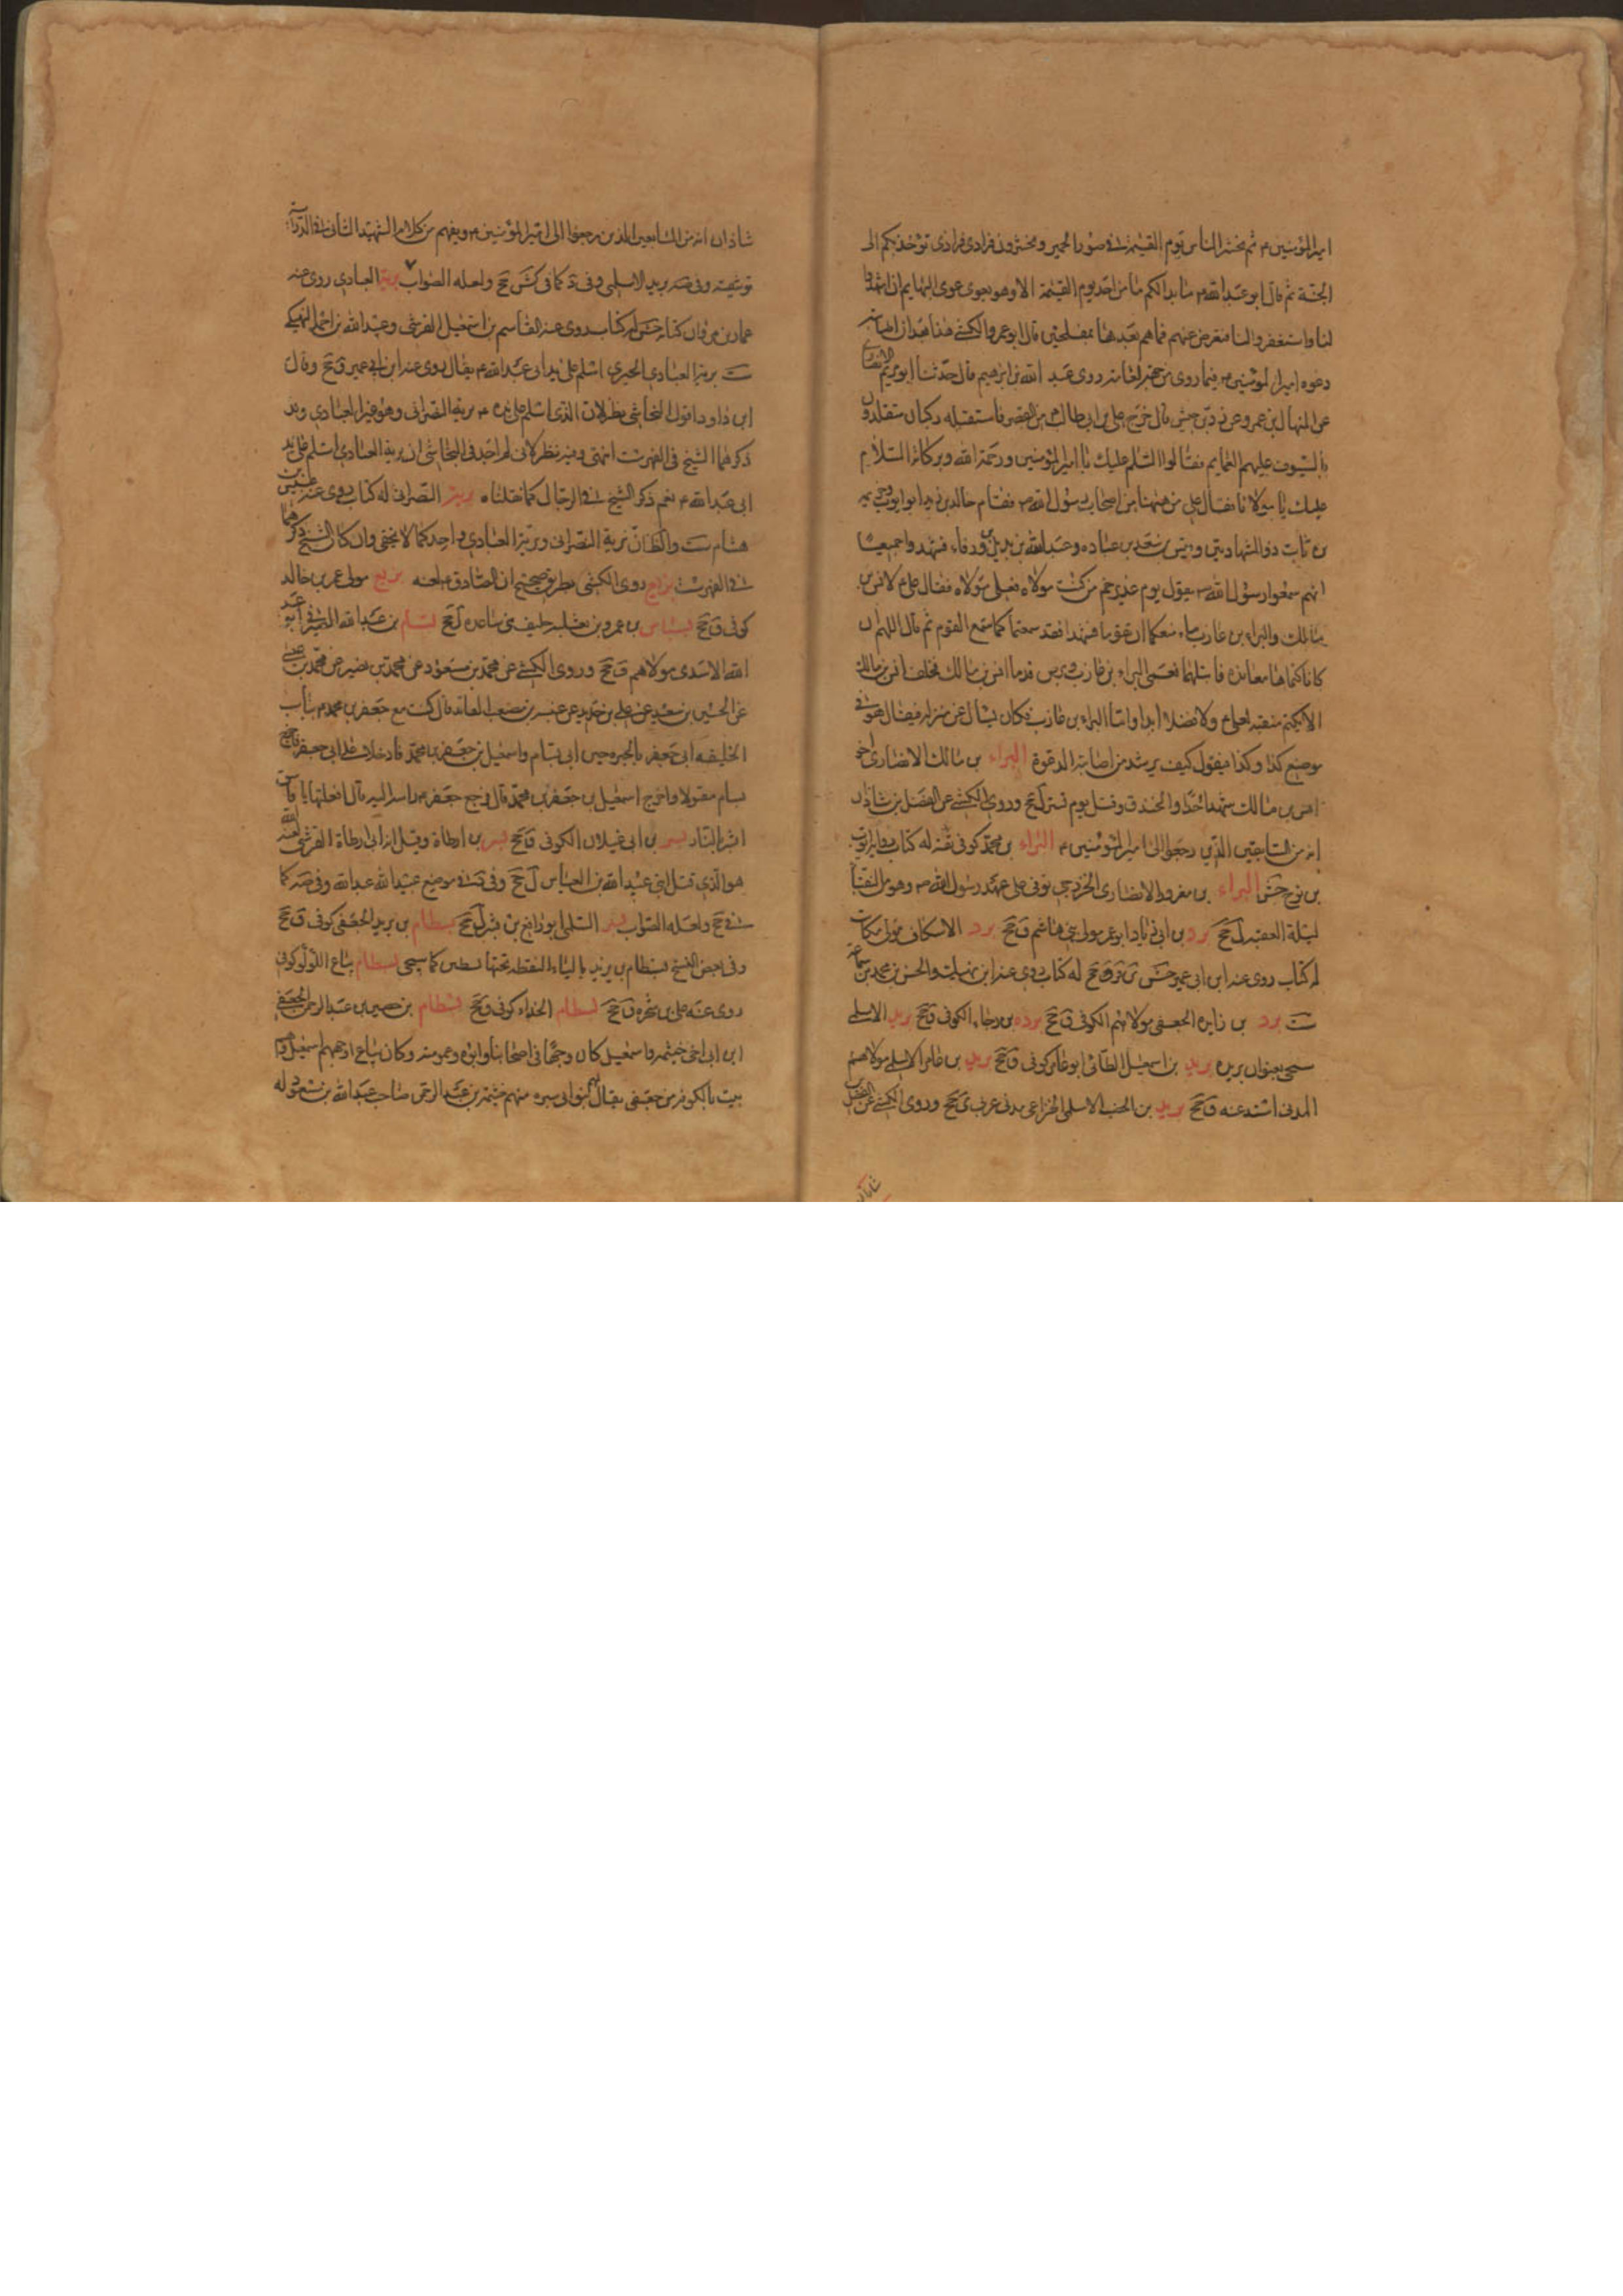 امير المؤمنين ع ثم يحشر الناس يوم القيمة في صور الحمير ويحشرون فرادى فرادى تؤخذ بكم الى
الجنة ثم قال ابو عبد الله ع ما بدا لكم ما من احد يوم القيمة الا وهو يعوي عوى البهايم ان اشهدوا
لنا واستغفروا لنا فنعرض عنهم فما هم بعدها بمفلحين قال ابو عمرو الكشي هذا بعد ان اصابته
دعوة امير المؤمنين ع فيما روى من جهة العامة روى عبد الله بن ابرهيم قال حدثنا ابو مريم الانصاري
عن المنهال بن عمرو عن زر بن حبيش قال خرج علي بن ابي طالب ع من القصر فاستقبله ركبان متقلدون
بالسيوف عليهم العمايم فقالوا السلم عليك يا امير المؤمنين ورحمة الله وبركاته السلام
عليك يا مولانا فقال علي من ههنا من اصحاب رسول الله ص فقام خالد بن زيد ابو ايوب وخزيمه
بن ثابت ذو الشهادتين وقيس بن سعد بن عباده وعبد الله بن بديل بن ورقاء فشهدوا جميعا
انهم سمعوا رسول الله ص يقول يوم غدير خم من كنت مولاه فعلي مولاه فقال علي ع لانس بن
مالك والبراء بن عازب ما منعكما ان تقوما فتشهدا فقد سمعتما كما سمع القوم ثم قال اللهم ان
كانا كتماها معاندة فابتلهما فعمى البراء بن عازب وبرص قدما انس بن مالك فحلف انس بن مالك
الا يكتم منقبة لعلي ع ولا فضلا ابدا واما البراء بن عازب فكان يسأل عن منزله فيقال هو في
موضع كذا وكذا فيقول كيف يرشد من اصابته الدعوة البراء بن مالك الانصاري اخو
انس بن مالك شهد احدا والخندق وقتل يوم تستر ل جخ وروى الكشي عن الفضل بن شاذان
انه من السابقين الذين رجعوا الى امير المؤمنين ع البراء بن محمد كوفي ثقة له كتاب يرويه ايوب
بن نوح جش البراء بن معرور الانصاري الخزرجي توفى على عهد رسول الله ص وهو من النقباء
ليلة العقبة ل جخ برد بن ابي زياد ابو عمر مولى بني هاشم ق جخ برد الاسكاف مولى مكاتب
له كتاب روى عنه ابن ابي عمير جش ق جخ له كتاب روى عنه ابن نهيك والحسن بن محمد بن سماعة
ست برد بن زايدة الجعفي مولاهم الكوفي ق جخ برده بن رجاء الكوفي ق جخ بريد الاسلمي
سيجي بعنوان بريده بريد بن اسمعيل الطائي ابو عامر كوفي ق جخ بريد بن عامر الاسلمي مولاهم
المدني اسند عنه ق جخ بريد بن الاسلمي الخزاعي مدني عربي جخ وروى الكشي عن الفضل بن
شاذان
شاذان انه من السابقين الذين رجعوا الى امير المؤمنين ع ويفهم من كلام الشهيد الثاني في الدراية
توثيقه وفي صه بريد الاسلمي وفي د كما في كش جخ ولعله الصواب بريه العبادي روى عنه
عمار بن مروان كتابه جش له كتاب روى عنه القاسم بن اسمعيل القرشي وعبد الله بن احمد النهيكي
ست بريه العبادي الحيري اسلم على يد ابي عبد الله ع يقال روى عنه ابن ابي عمير ق جخ وقال
ابن داود اقول النجاشي نظر لان الذي اسلم على يده ع بريه النصراني وهو غير العبادي وقد
ذكرهما الشيخ في الفهرست انتهى وفيه نظر لاني لم اجد في النجاشي ان بريه العبادي اسلم على يد
ابي عبد الله ع نعم ذكر الشيخ في الرجال كما نقلناه بريه النصراني له كتاب روى عنه عبيس بن
هشام ست والظان بريه النصراني وبريه العبادي واحد كما لا يخفى وان كان الشيخ ذكرهما
في الفهرست بزيع روى الكشي بطريق صحيح ان الصادق ع لعنه بزيع مولى عمرو بن خالد
كوفي ق جخ بسباس بن عمرو بن ثعلبه حليف بني ساعده ل جخ بسام بن عبد الله الصيرفي ابو عبد
الله الاسدي مولاهم ق جخ وروى الكشي عن محمد بن مسعود عن محمد بن نصير عن محمد بن عيسى
عن الحسين بن سعيد عن علي بن حديد عن عنبسة بن مصعب العابد قال كنت مع جعفر بن محمد ع بباب
الخليفة ابي جعفر بالحيره حين اتى بسام واسمعيل بن جعفر بن محمد فادخلا على ابي جعفر فاخرج
بسام مقتولا واخرج اسمعيل بن جعفر بن محمد قال فرفع جعفر ع راسه اليه قال افعلتها يا فاسق
ابشر بالنار بسر بن ابي غيلان الكوفي ق جخ بسر بن ارطاة وقيل ابن ابي ارطاة القرشي لعنه الله
هو الذي قتل ابني عبيد الله بن العباس ل جخ وفي موضع عبيد الله عبد الله وفي صه كما
في جخ ولعله الصواب بسر السلمي ابو رافع بن بشر ل جخ بسطام بن يزيد الجعفي كوفي ق جخ
وفي بعض النسخ بسطام بن بريد بالباء النقطة تحتها نقطتين كما سيجي بسطام بياع اللؤلؤ كوفي
روى عنه علي بن شجره ق جخ بسطام الحذاء كوفي ق جخ بسطام بن حصين بن عبد الرحمن الجعفي
ابن ابي اخي خيثمه واسمعيل كان وجها في اصحابنا وابوه وعمومته وكان اوجههم اسمعيل وهم
بيت بالكوفة من جعفي يقال لهم بنو ابي سبره منهم خيثمه بن عبد الرحمن صاحب عبد الله بن مسعود له